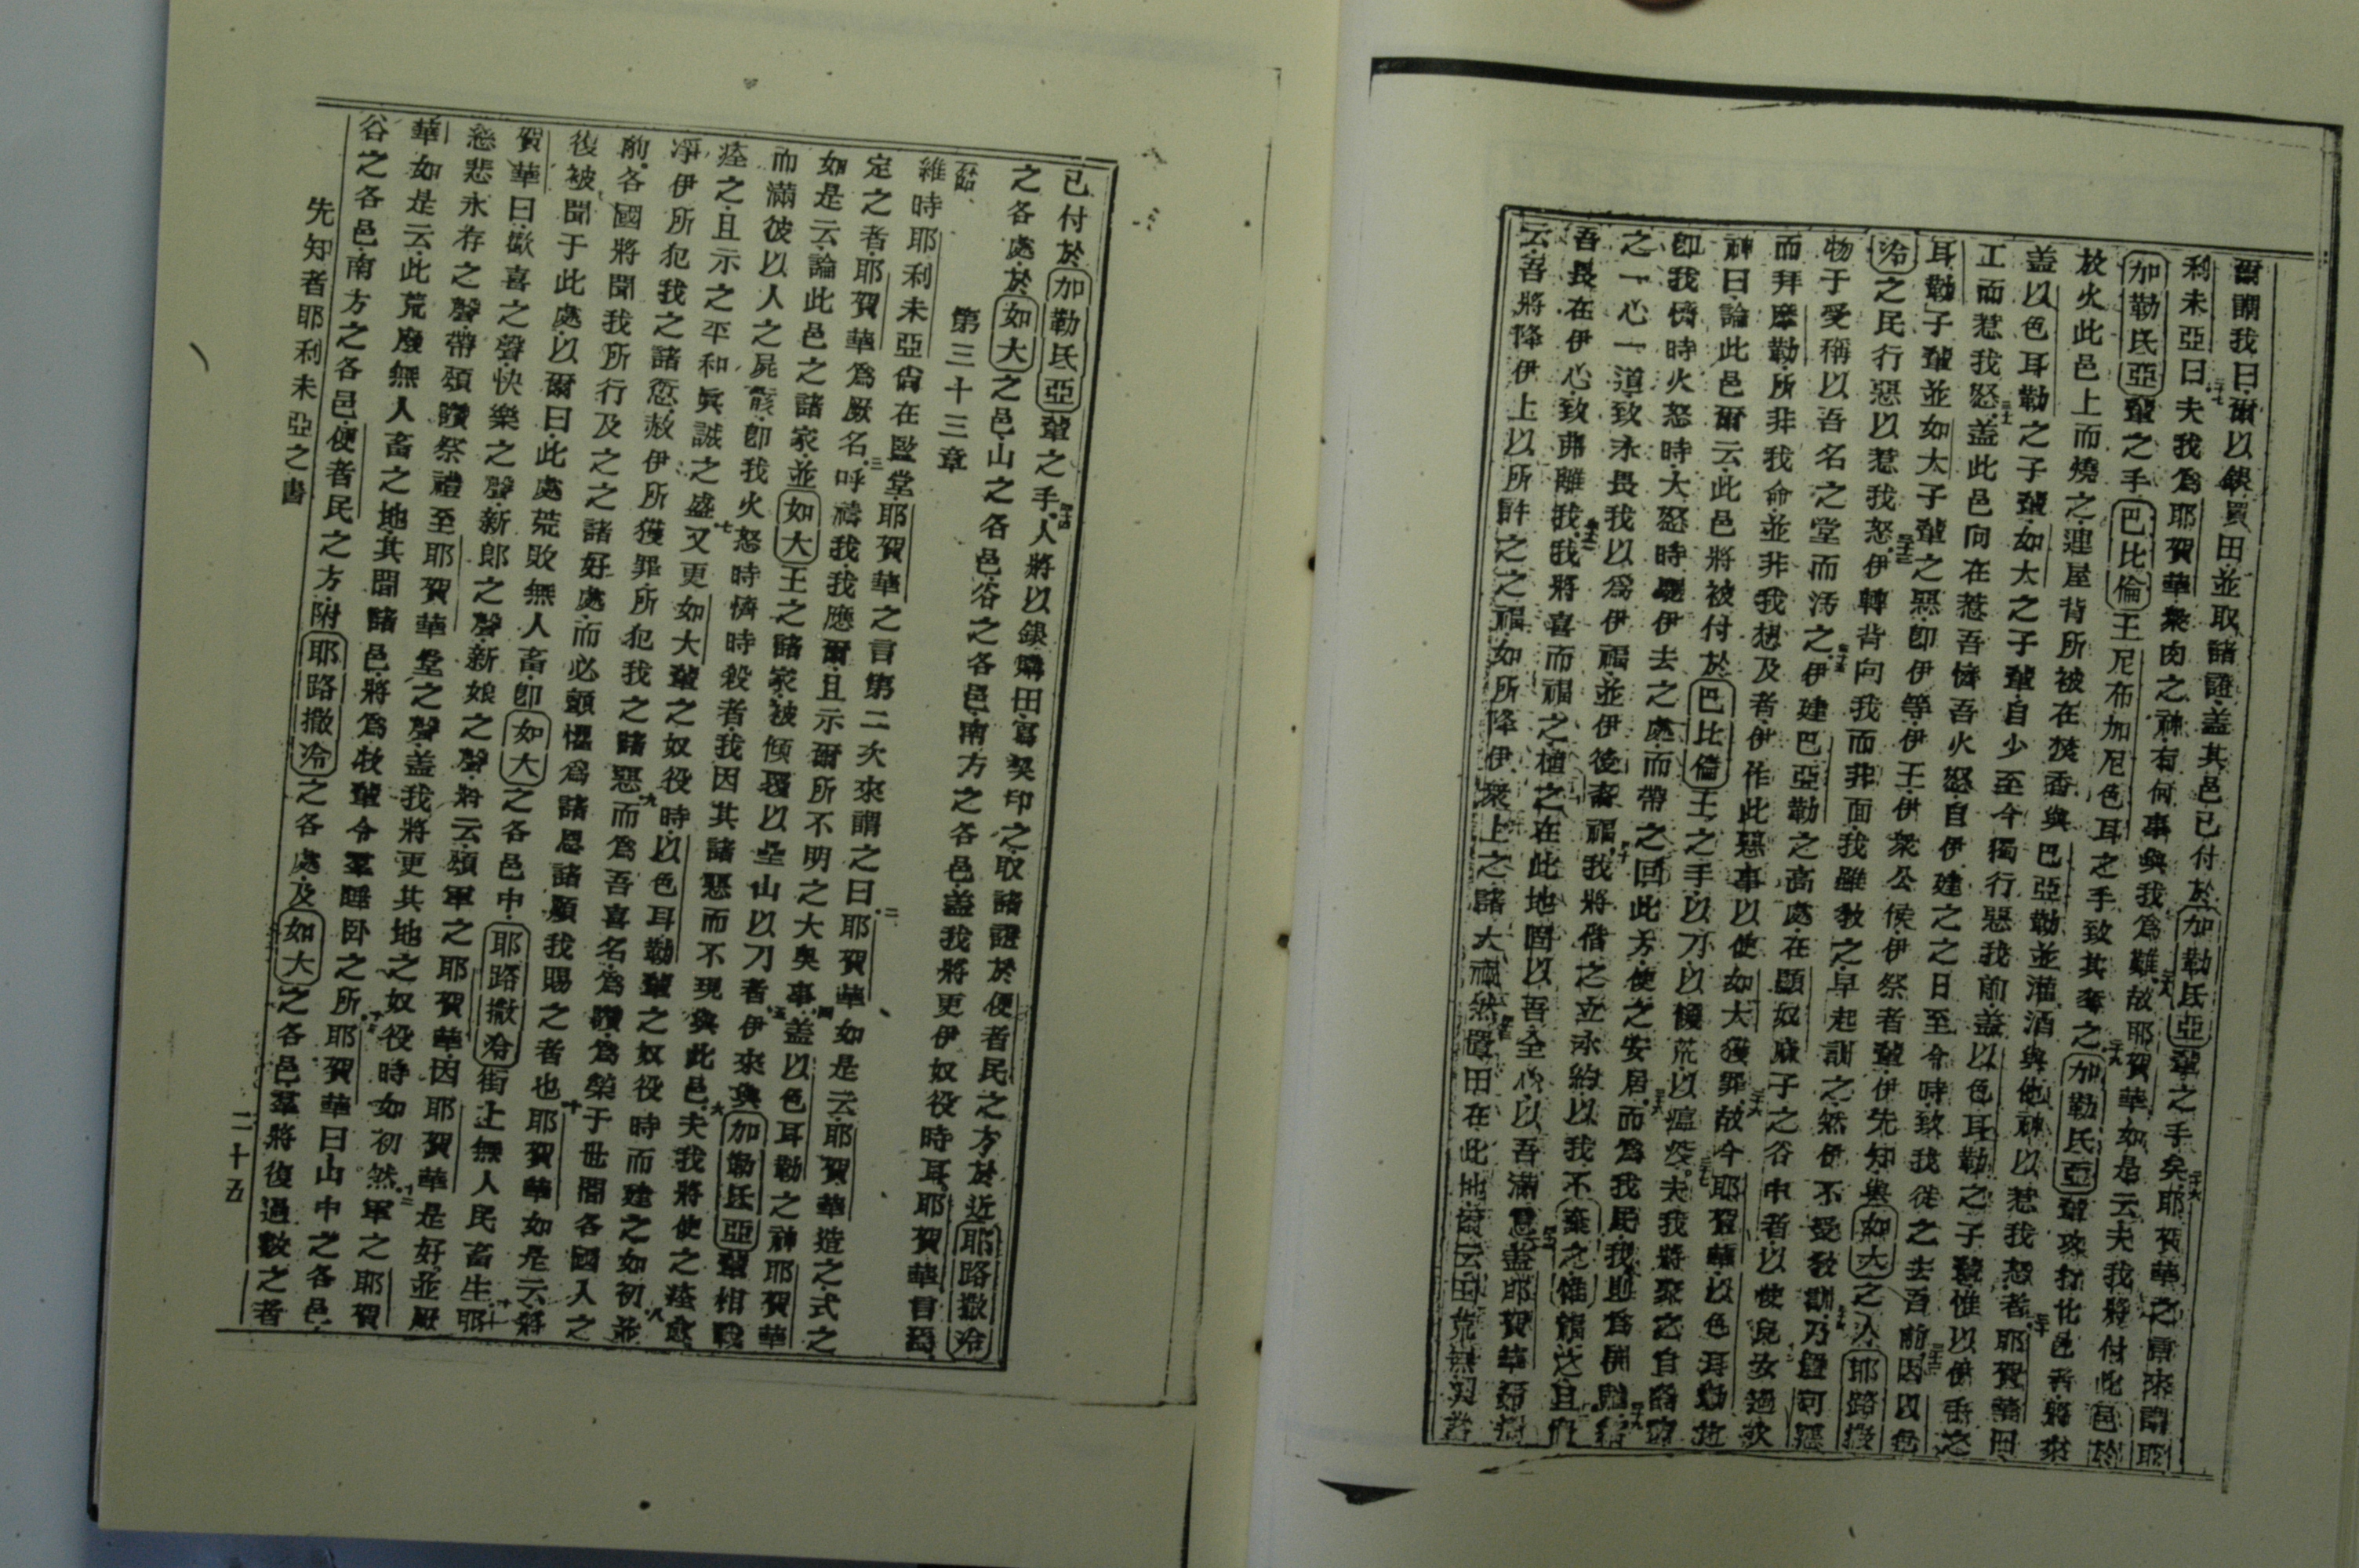 爾謂我曰爾以銀買田並取諸證蓋其邑已付於加勒氏亞輩之手矣耶賀華之言來謂耶
利未亞曰夫我爲耶賀華衆肉之神有何事與我爲難故耶賀華如是云夫我將付此邑於
加勒氏亞輩之手巴比倫王尼布加尼色耳之手致其奪之加勒氏亞輩攻打此邑者將來
放火此邑上而燒之連屋背所被在焚香與巴亞勒並灌酒與他神以惹我怒者耶賀華曰
蓋以色耳勒之子輩如大之子輩自少至今獨行惡我前蓋以色耳勒之子輩惟以伊手之
工而惹我怒蓋此邑向在惹吾憤吾火怒自伊建之之日至今時致我徙之去吾前因以色
耳勒子輩並如大子輩之惡卽伊等伊王伊衆公侯伊祭者輩伊先知與如大之人耶路撒
冾之民行惡以惹我怒伊轉背向我而非面我雖敎之早起訓之然伊不受敎訓乃置可惡
物于受稱以吾名之堂而汚之伊建巴亞勒之高處在顯奴廉子之谷中者以使兒女過火
而拜摩勒所非我命並非我想及者伊作此惡事以使如大獲罪故今耶賀華以色耳勒之
神曰論此邑爾云此邑將被付於巴比倫王之手以刀以饑荒以瘟疫夫我將聚之自各方
卽我憤時火怒時大怒時驅伊去之處而帶之回此方使之安居而爲我民我則爲伊神給
之一心一道致永畏我以爲伊福並伊後者福我將偕之立永約以我不棄之惟福之且置
吾畏在伊心致弗離我我將喜而福之植之在此地固以吾全心以吾滿意蓋耶賀華如是
云吾將降伊上以所許之之福如所降伊衆上之諸大禍然置田在此地爾云田荒無人畜
已付於加勒氏亞輩之手人將以銀購田寫契印之取諸證於便者民之方於近耶路撒冾
之各處於如大之邑山之各邑谷之各邑南方之各邑蓋我將更伊奴役時耳耶賀華言焉
第三十三章
維時耶利未亞尙在監堂耶賀華之言第二次來謂之曰耶賀華如是云耶賀華造之式之
定之者耶賀華爲厥名呼禱我我應爾且示爾所不明之大奧事蓋以色耳勒之神耶賀華
如是云論此邑之諸家並如大王之諸家被傾覆以壘山以刀者伊來與加勒氏亞輩相戰
而滿彼以人之屍骸卽我火怒時憤時殺者我因其諸惡而不現與此邑夫我將使之痊愈
痊之且示之平和眞誠之盛又更如大輩之奴役時以色耳勒輩之奴役時而建之如初並
凈伊所犯我之諸愆赦伊所獲罪所犯我之諸惡而爲吾喜名爲讚爲榮于世間各國人之
前各國將聞我所行及之之諸好處而必顫懼爲諸恩諸願我賜之者也耶賀華如是云將
復被聞于此處以爾曰此處荒敗無人畜卽如大之各邑中耶路撒冾街上無人民畜生耶
賀華曰歡喜之聲快樂之聲新郎之聲新娘之聲將云頌軍之耶賀華因耶賀華是好並厥
慈悲永存之聲帶頌讚祭禮至耶賀華堂之聲蓋我將更其地之奴役時如初然軍之耶賀
華如是云此荒廢無人畜之地其間諸邑將爲牧輩令羣睡卧之所耶賀華曰山中之各邑
谷之各邑南方之各邑便者民之方附耶路撒冾之各處及如大之各邑羣將復過數之者
先知者耶利未亞之書
二十五